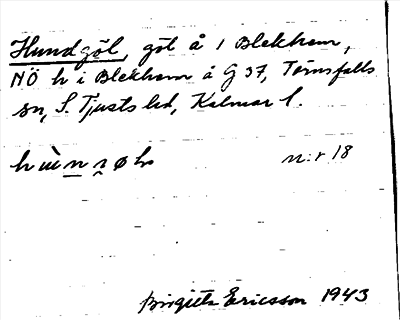 Hundgöl, göl å 1 Blekhem,
NÖ h i Blekhem å G 37, Törnsfalls
sn, S Tjusts hd, Kalmar l.
n:r 18
Birgitta Ericsson 1943